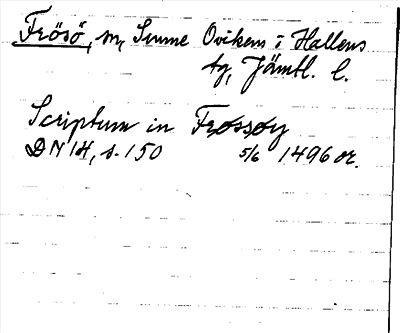 Frösö, m, Sunne Ovikens i Hallens
tg, Jämtl. l.
Scriptum in Frøssøy
DN 14, s. 150 5/6 1496 or.